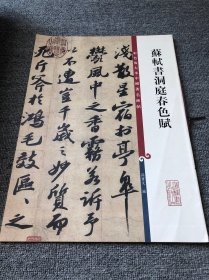 蘇軾書洞庭春色賦
淺散星宿於亭皋
鬱風中之香霧若訴予
以不遭豈千歲之妙質而
死斤斧於鴻毛效區區之